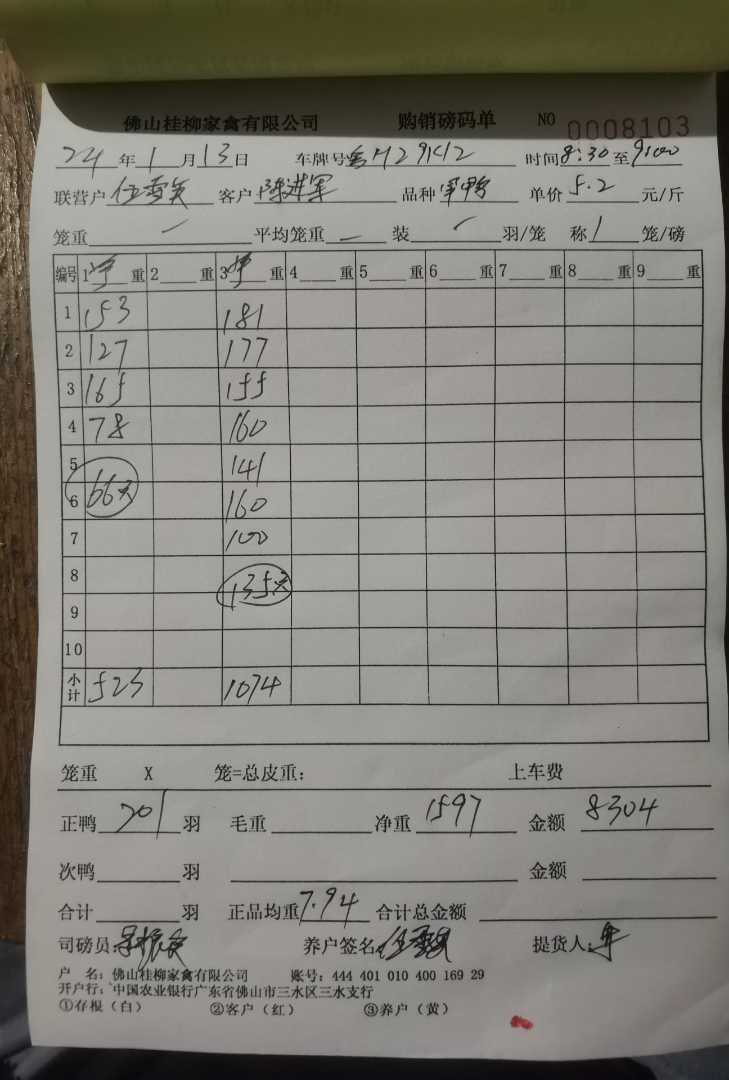 佛山桂柳家禽有限公司 购销磅码单 NO 0008103
24年1月13日 车牌号 H29K12 时间8:30至9:00
联营户 客户陈进军 品种 单价5.2元/斤
笼重一 平均笼重一 装一羽/笼 称1笼/磅
编号 1 重 2 重 3 重 4 重 5 重 6 重 7 重 8 重 9 重
1 153 181
2 127 177
3 165 155
4 78 160
5 141
6 66只 160
7 100
8 135只
9
10
小计 523 1074
笼重 X 笼=总皮重: 上车费
正鸭201羽 毛重 净重1597 金额8304
次鸭 羽 金额
合计 羽 正品均重7.94 合计总金额
司磅员: 养户签名: 提货人:
户 名: 佛山桂柳家禽有限公司 账号: 444 401 010 400 169 29
开户行: 中国农业银行广东省佛山市三水区三水支行
①存根(白) ②客户(红) ③养户(黄)